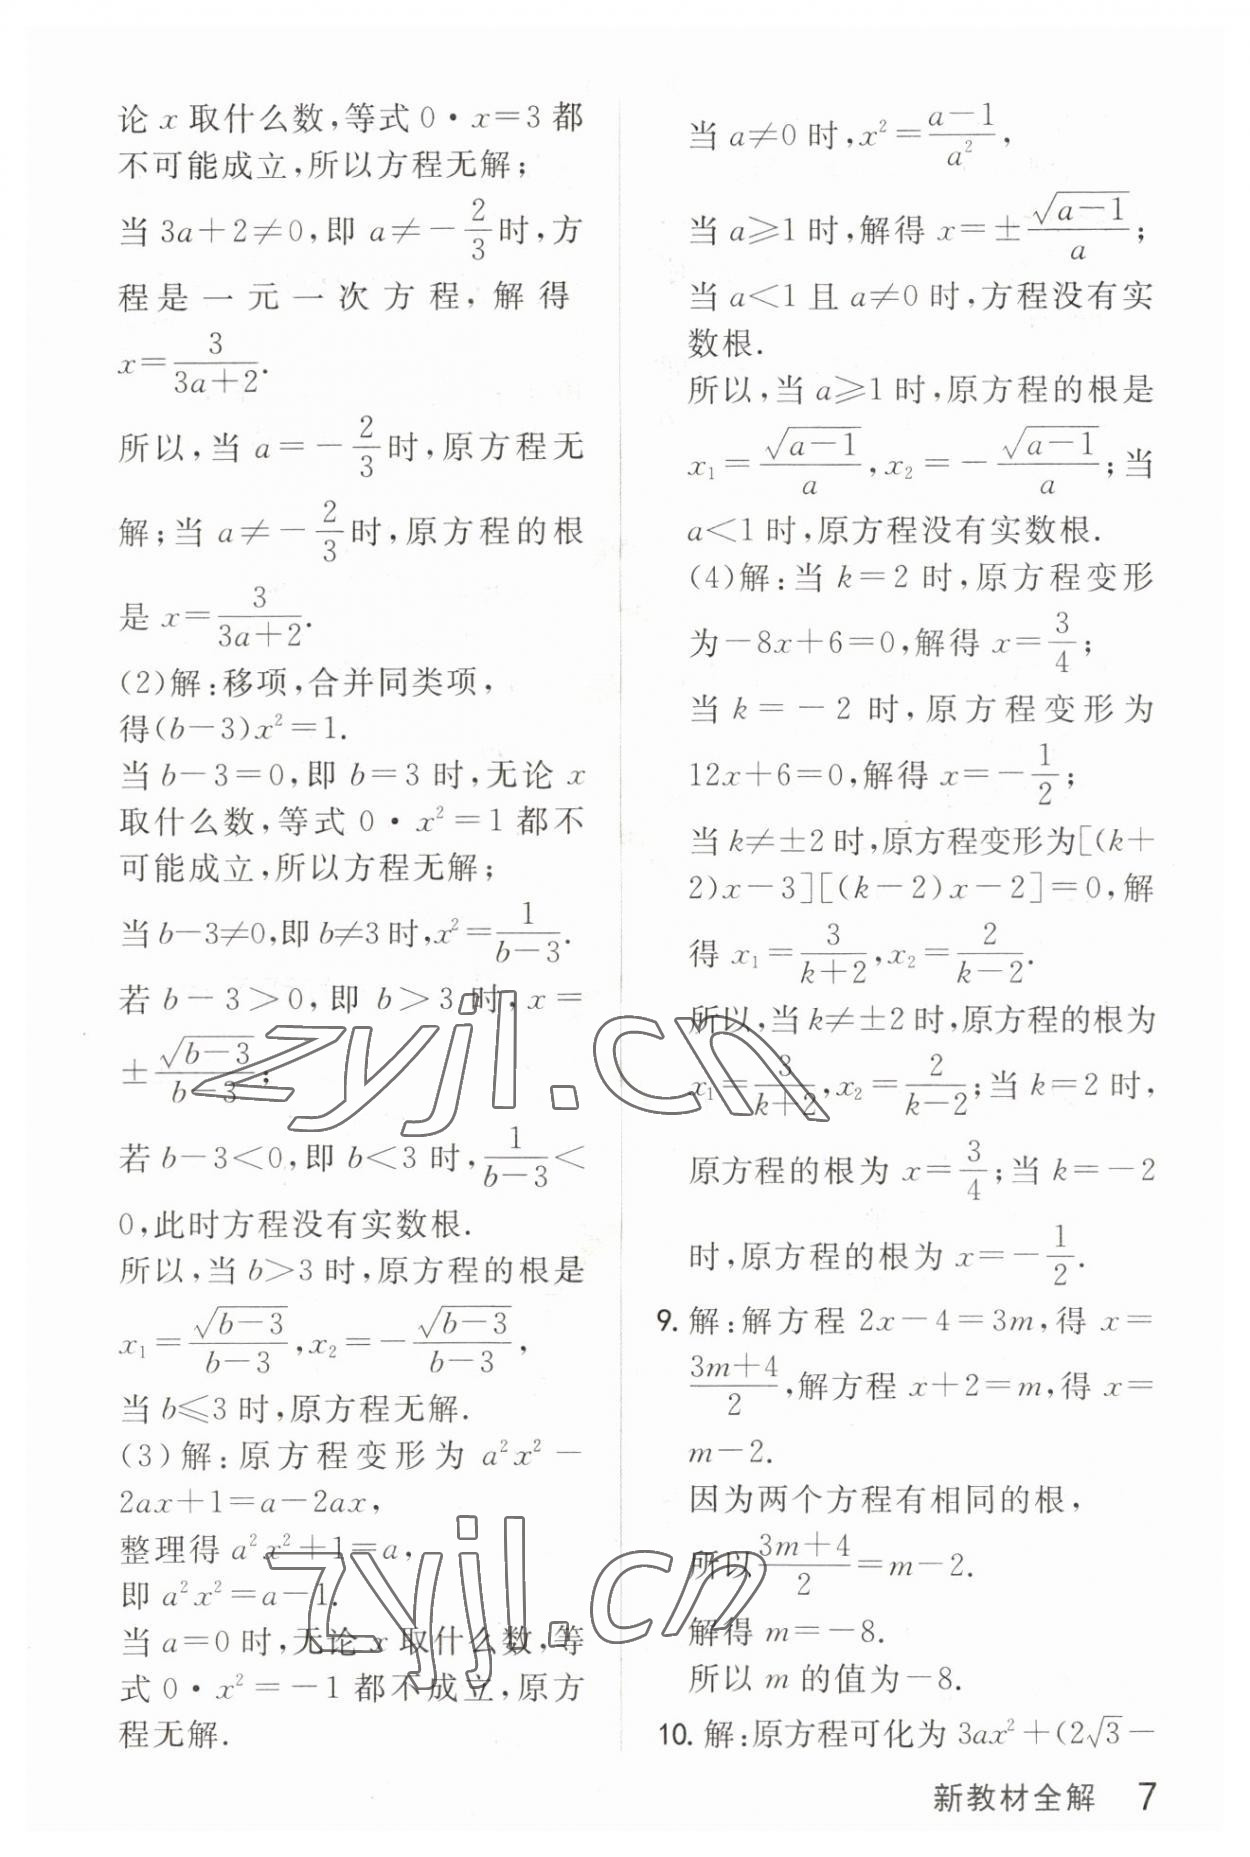 论 x 取什么数,等式 0·x=3 都
不可能成立,所以方程无解;
当 3a+2≠0,即 a≠-2/3时,方
程是一元一次方程,解得
x=3/(3a+2).
所以,当 a=-2/3时,原方程无
解;当 a≠-2/3时,原方程的根
是 x=3/(3a+2).
(2)解:移项,合并同类项,
得(b-3)x²=1.
当 b-3=0,即 b=3 时,无论 x
取什么数,等式 0·x²=1 都不
可能成立,所以方程无解;
当 b-3≠0,即 b≠3 时,x²=1/(b-3).
若 b-3>0,即 b>3 时,x=
±√(b-3)/(b-3);
若 b-3<0,即 b<3 时,1/(b-3)<
0,此时方程没有实数根.
所以,当 b>3 时,原方程的根是
x₁=√(b-3)/(b-3),x₂=-√(b-3)/(b-3),
当 b≤3 时,原方程无解.
(3)解:原方程变形为 a²x²-
2ax+1=a-2ax,
整理得 a²x²+1=a,
即 a²x²=a-1.
当 a=0 时,无论 x 取什么数,等
式 0·x²=-1 都不成立,原方
程无解.
当 a≠0 时,x²=(a-1)/a²,
当 a≥1 时,解得 x=±√(a-1)/a;
当 a<1 且 a≠0 时,方程没有实
数根.
所以,当 a≥1 时,原方程的根是
x₁=√(a-1)/a,x₂=-√(a-1)/a;当
a<1 时,原方程没有实数根.
(4)解:当 k=2 时,原方程变形
为-8x+6=0,解得 x=3/4;
当 k=-2 时,原方程变形为
12x+6=0,解得 x=-1/2;
当 k≠±2 时,原方程变形为[(k+
2)x-3][(k-2)x-2]=0,解
得 x₁=3/(k+2),x₂=2/(k-2).
所以,当 k≠±2 时,原方程的根为
x₁=3/(k+2),x₂=2/(k-2);当 k=2 时,
原方程的根为 x=3/4;当 k=-2
时,原方程的根为 x=-1/2.
9. 解:解方程 2x-4=3m,得 x=
(3m+4)/2,解方程 x+2=m,得 x=
m-2.
因为两个方程有相同的根,
所以(3m+4)/2=m-2.
解得 m=-8.
所以 m 的值为-8.
10. 解:原方程可化为 3ax²+(2√3-
新教材全解 7
zyjl.cn
zyjl.cn